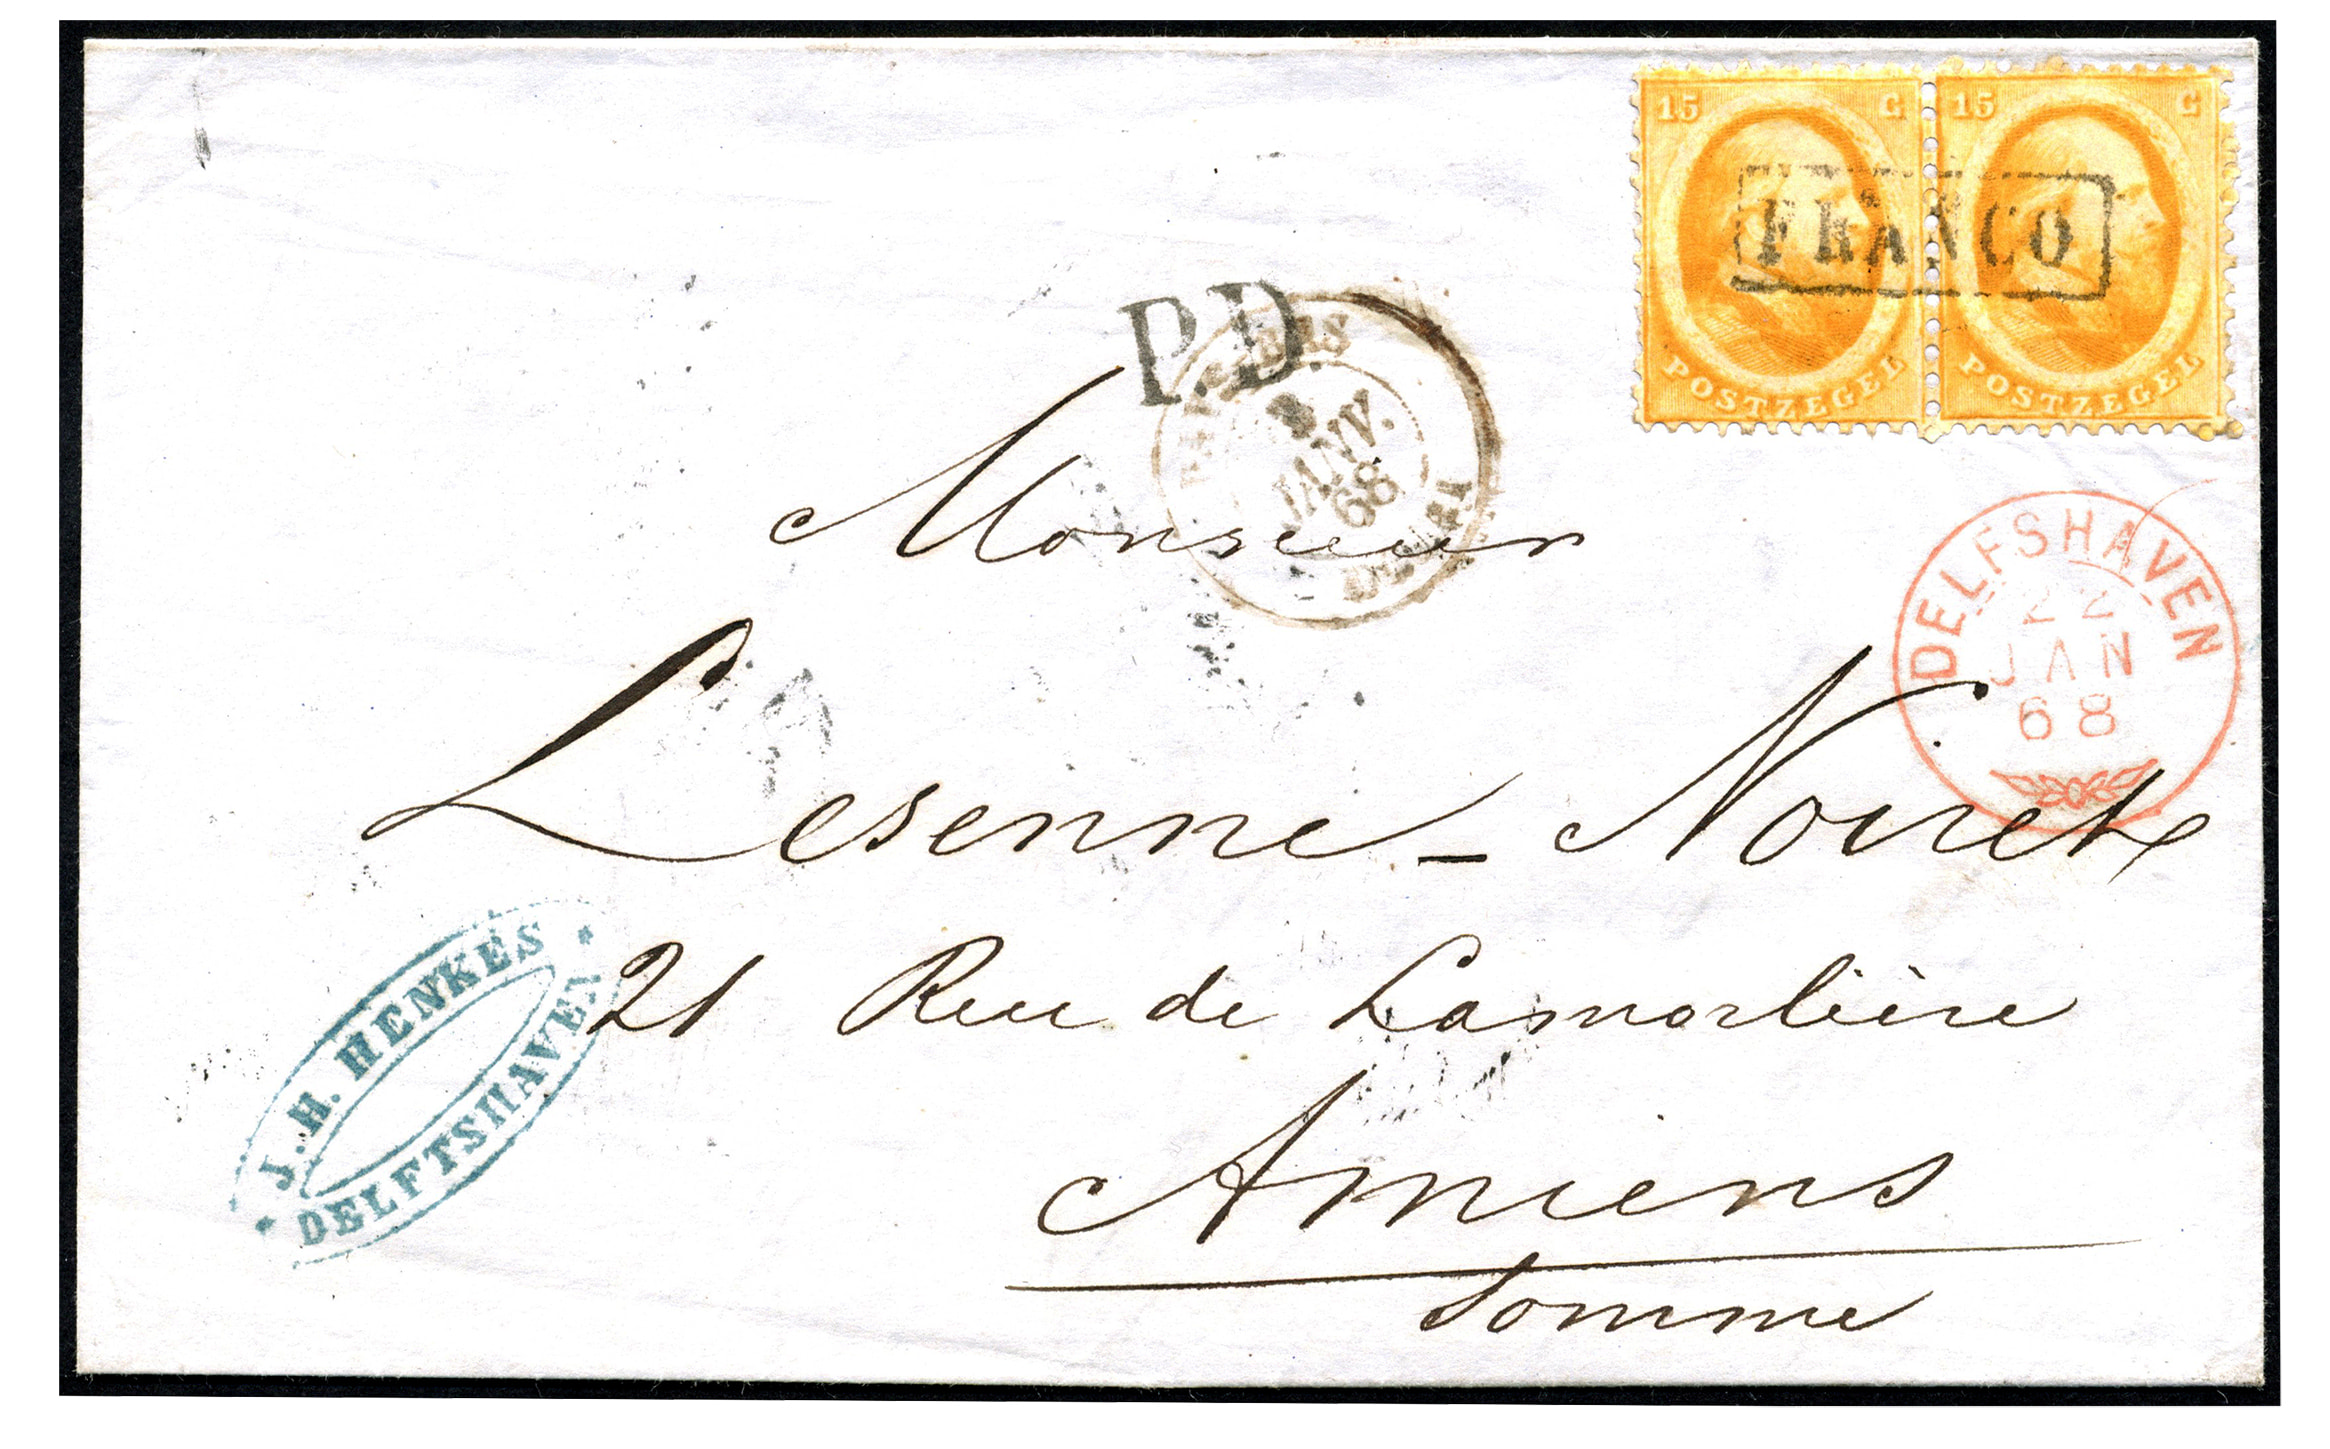 15 C 15 C
FRANCO
POSTZEGEL POSTZEGEL
P.D.
JANV.
68
DELFSHAVEN
22
JAN
68
Monsieur
Lesenne-Noiret
21 Rue de Lamorlière
Amiens
Somme
J. H. HENKES
DELFTSHAVEN